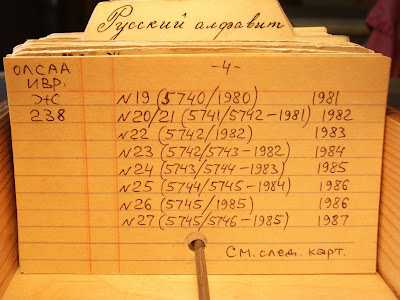 Русский алфавит
-4-
ОЛСАА
ИВР.
Ж
238
N19 (5740/1980) 1981
N20/21 (5741/5742-1981) 1982
N22 (5742/1982) 1983
N23 (5742/5743-1982) 1984
N24 (5743/5744-1983) 1985
N25 (5744/5745-1984) 1986
N26 (5745/1985) 1986
N27 (5745/5746-1985) 1987
См. след. карт.